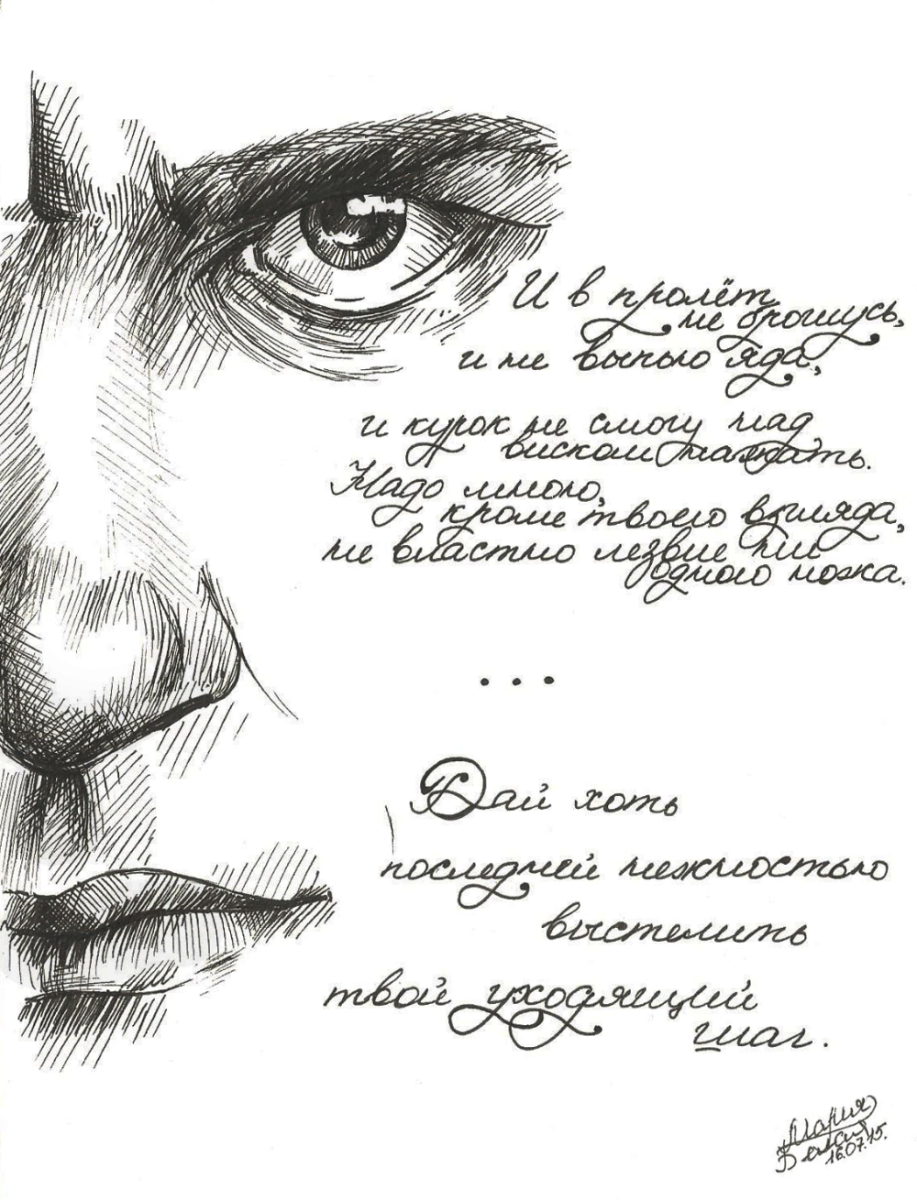 И в пролёт
не брошусь,
и не выпью яда,
и курок не смогу над
виском нажать.
Надо мною,
кроме твоего взгляда,
не властно лезвие ни
одного ножа.
...
Дай хоть
последней нежностью
выстелить
твой уходящий
шаг.
Мария
Белая
16.07.15.